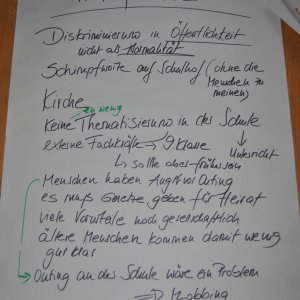 Diskriminierung in Öffentlichkeit
nicht als Normalität
Schimpfworte auf Schulhof (ohne die
Menschen zu
meinen)
Kirche
zu wenig
Keine Thematisierung in der Schule
externe Fachkräfte 9 Klasse
Unterricht
↳ sollte aber früher sein
Menschen haben Angst vor Outing
es muß Gesetze geben für Heirat
viele Vorurteile noch gesellschaftlich
ältere Menschen kommen damit wenig
gut klar
→ Outing an der Schule wäre ein Problem
⇒ Mobbing